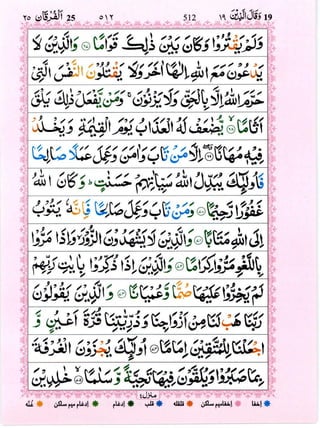 19 وَقَالَ الَّذِیْنَ ١٩ 512 ٥١٢ 25 اَلْفُرْقَان ٢٥
وَلَمْ یَقْتُرُوْا وَكَانَ بَیْنَ ذٰلِكَ قَوَامًا ﴿٦٧﴾ وَالَّذِیْنَ لَا
یَدْعُوْنَ مَعَ اللّٰهِ اِلٰهًا اٰخَرَ وَلَا یَقْتُلُوْنَ النَّفْسَ الَّتِیْ
حَرَّمَ اللّٰهُ اِلَّا بِالْحَقِّ وَلَا یَزْنُوْنَ ۚ وَمَنْ یَّفْعَلْ ذٰلِكَ یَلْقَ
اَثَامًا ﴿٦٨﴾ یُّضٰعَفْ لَهُ الْعَذَابُ یَوْمَ الْقِیٰمَةِ وَیَخْلُدْ
فِیْهٖ مُهَانًا ﴿٦٩﴾ اِلَّا مَنْ تَابَ وَاٰمَنَ وَعَمِلَ عَمَلًا صَالِحًا
فَاُولٰٓئِكَ یُبَدِّلُ اللّٰهُ سَیِّاٰتِهِمْ حَسَنٰتٍ ؕ وَكَانَ اللّٰهُ
غَفُوْرًا رَّحِیْمًا ﴿٧٠﴾ وَمَنْ تَابَ وَعَمِلَ صَالِحًا فَاِنَّهٗ یَتُوْبُ
اِلَی اللّٰهِ مَتَابًا ﴿٧١﴾ وَالَّذِیْنَ لَا یَشْهَدُوْنَ الزُّوْرَ ۙ وَاِذَا مَرُّوْا
بِاللَّغْوِ مَرُّوْا كِرَامًا ﴿٧٢﴾ وَالَّذِیْنَ اِذَا ذُكِّرُوْا بِاٰیٰتِ رَبِّهِمْ
لَمْ یَخِرُّوْا عَلَیْهَا صُمًّا وَّعُمْیَانًا ﴿٧٣﴾ وَالَّذِیْنَ یَقُوْلُوْنَ
رَبَّنَا هَبْ لَنَا مِنْ اَزْوَاجِنَا وَذُرِّیّٰتِنَا قُرَّةَ اَعْیُنٍ وَّ
اجْعَلْنَا لِلْمُتَّقِیْنَ اِمَامًا ﴿٧٤﴾ اُولٰٓئِكَ یُجْزَوْنَ الْغُرْفَةَ
بِمَا صَبَرُوْا وَیُلَقَّوْنَ فِیْهَا تَحِیَّةً وَّسَلٰمًا ﴿٧٥﴾ خٰلِدِیْنَ
منزل ٤
اخفا اخفامیم ساکن قلقلہ قلب ادغام ادغام میم ساکن غنہ